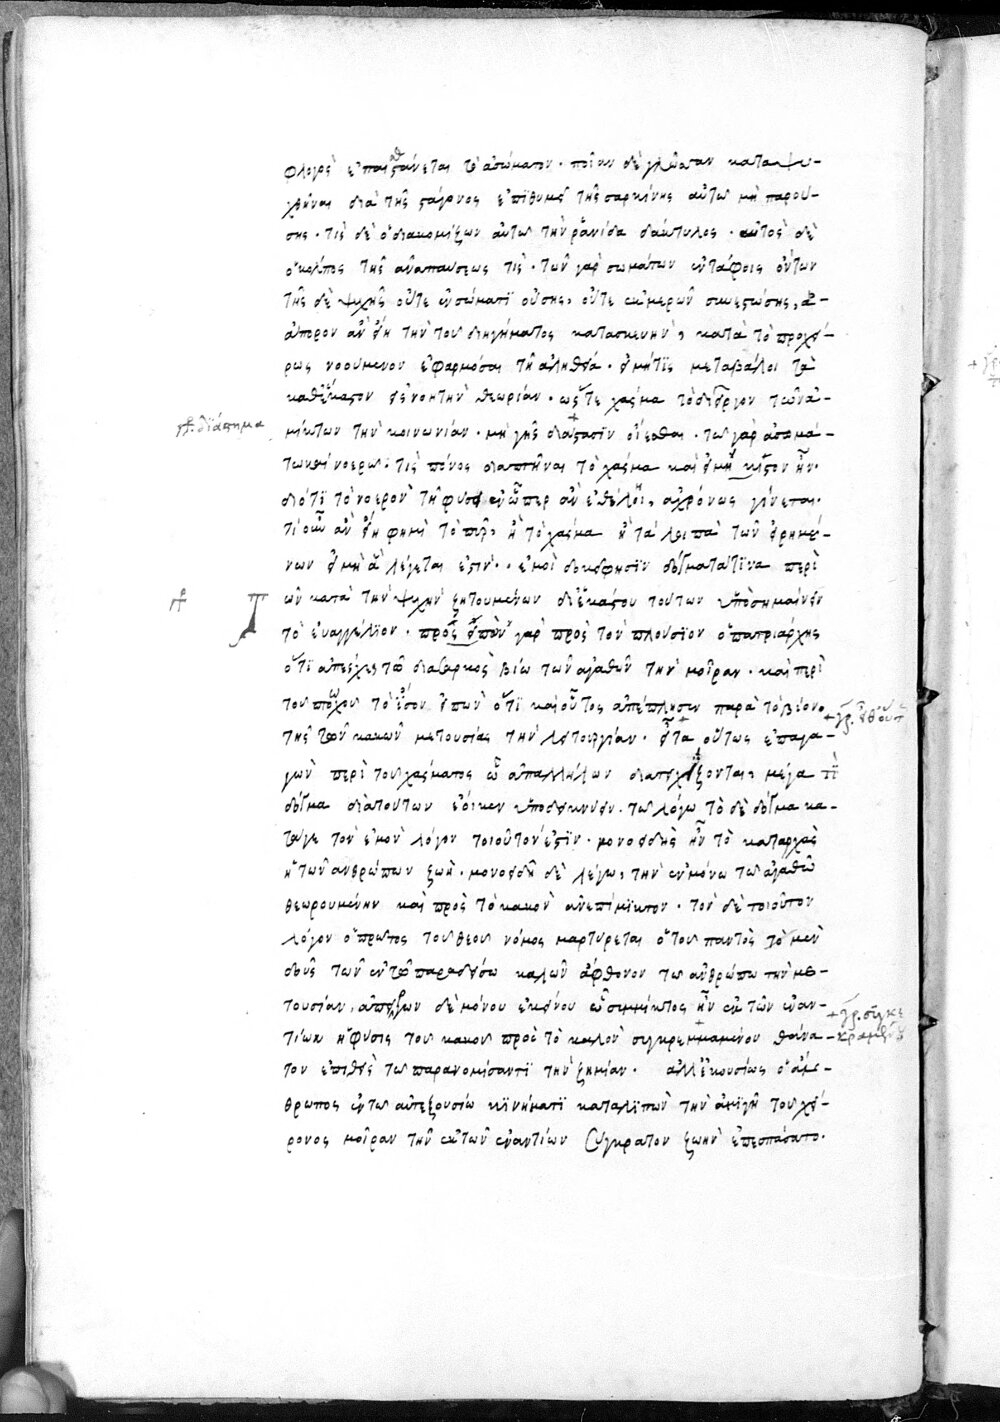 φλογὸς ἐπαισθάνεται τὸ ἀσώματον · ποίαν δὲ γλῶσσαν καταψυ-
χθῆναι διὰ τῆς σταγόνος ἐπιθυμεῖ τῆς σαρκίνης αὐτῶ μὴ παρού-
σης · τίς δὲ ὁ διακομίζων αὐτῶ τὴν ῥανίδα δάκτυλος · αὐτὸς δὲ
ὁ κόλπος τῆς ἀναπαύσεως τίς · τῶν γὰρ σωμάτων ἐν τάφοις ὄντων
τῆς δὲ ψυχῆς οὔτε ἐν σώματι οὔσης, οὔτε ἐκ μερῶν συνεστώσης,
ἄπορον ἂν εἴη τὴν τοῦ διηγήματος κατασκευὴν, κατὰ τὸ προχεί-
ρως νοούμενον ἐφαρμόσαι τῆ ἀληθεία · εἰ μήτις μεταβάλοι τὰ
καθέκαστον εἰς νοητὴν θεωρίαν · ὥστε χάσμα τὸ διεῖργον τῶν ἀ-
μίκτων τὴν κοινωνίαν · μὴ γῆς διάστασιν οἴεσθαι · τῶ γὰρ ἀσωμά-
τω καὶ νοερῶ · τίς πόνος διαπτῆναι τὸ χάσμα καὶ εἰ μὴ κἴστον ἦν ·
διότι τὸ νοερὸν τῆ φύσει ἐν ὧπερ ἂν ἐθέλοι, ἀχρόνως γίνεται ·
τί οὖν ἂν εἴη φημὶ τὸ πῦρ, ἢ τὸ χάσμα ἢ τὰ λοιπὰ τῶν εἰρημέ-
νων εἰ μὴ ἃ λέγεται ἐστίν · ἐμοὶ δοκεῖ φησὶν δόγματά τινα περὶ
ὧν κατὰ τὴν ψυχὴν ζητουμένων δι' ἑκάστου τούτων ὑποσημαίνειν
τὸ εὐαγγέλιον · προσειπὼν γὰρ πρὸς τὸν πλούσιον ὁ πατριάρχης
ὅτι ἀπέσχες τῶ διὰ σαρκὸς βίω τῶν ἀγαθῶν τὴν μοῖραν · καὶ περὶ
τοῦ πτωχοῦ τὸ ἴσον εἰπὼν ὅτι καὶ οὗτος ἀπέπλησεν παρὰ τὸν βίον
τῆς τῶν κακῶν μετουσίας τὴν λειτουργίαν · εἶτα οὕτως ἐπαγα-
γὼν περὶ τοῦ χάσματος ὧ ἀπ' ἀλλήλων διατειχίζονται, μέγα τι
δόγμα διὰ τούτων ἔοικεν ὑποδεικνύειν τῶ λόγω τὸ δὲ δόγμα κα-
τά γε τὸν ἐμὸν λόγον τοιοῦτόν ἐστιν · μονοειδὴς ἦν τὸ καταρχὰς
ἡ τῶν ἀνθρώπων ζωὴ · μονοειδῆ δὲ λέγω, τὴν ἐν μόνω τῶ ἀγαθῶ
θεωρουμένην καὶ πρὸς τὸ κακὸν ἀνεπίμικτον · τὸν δὲ τοιοῦτον
λόγον ὁ πρῶτος τοῦ θεοῦ νόμος μαρτύρεται ὁ τοῦ παντὸς τὸ μὲν
δοὺς τῶν ἐν τῶ παραδείσω καλῶν ἄφθονον τῶ ἀνθρώπω τὴν με-
τουσίαν, ἀπείργων δὲ μόνου ἐκείνου ὧ σύμμικτος ἦν ἐκ τῶν ἐναν-
τίων ἡ φύσις τοῦ κακοῦ πρὸς τὸ καλὸν συγκρεμμαμένου θάνα-
τον ἐπιθεὶς τῶ παρανομίσαντι τὴν ζημίαν · ἀλλ' ἑκουσίως ὁ ἄν-
θρωπος ἐν τῶ αὐτεξουσίω κινήματι καταλιπὼν τὴν ἀμιγῆ τοῦ χεί-
ρονος μοῖραν τὴν ἐκ τῶν ἐναντίων σύγκρατον ζωὴν ἐπεσπάσατο ·
γρ. διάστημα
+ γρ. σύγκε
κραμένου